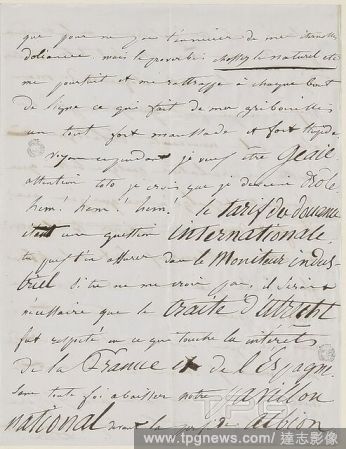 que pour ne pas t'ennuier de mes éternelles
doléances. mais le proverbe: chassez le naturel etc
me poursuit et me rattrappe à chaque bout
de ligne ce qui fait de mes gribouillis
un tout fort maussade et fort stupide
Voyons cependant je veux être Geaie
attention toto je crois que je deviens Drole
hem! hem! hem! le tarif des douanes
était une question internationale.
tu peux t'en assurer dans le Moniteur indus-
triel si tu ne me crois pas, il serait
nécessaire que le traité d'utrecht
fut respecté en ce que touche les intérêts
de la France et de l'Espagne
sans toute fois abaisser notre pavillon
national devant la perfide albion
TPG
www.tpgnews.com / 達志影像